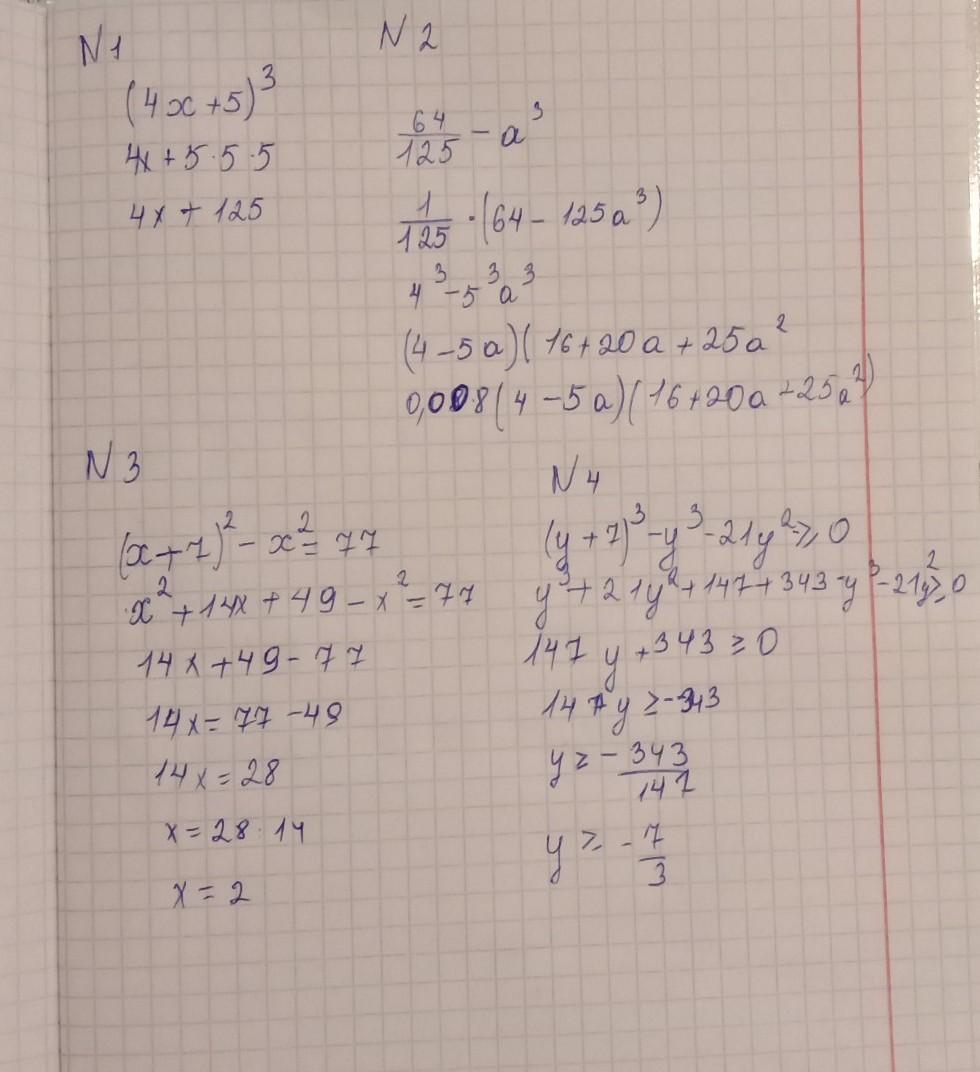 N1
(4x+5)³
4x+5·5·5
4x+125
N2
64/125 - a³
1/125 · (64 - 125a³)
4³-5³a³
(4-5a)(16+20a+25a²
0,008(4-5a)(16+20a+25a²)
N3
(x+7)² - x² = 77
x²+14x+49-x²=77
14x+49-77
14x=77-49
14x=28
x=28·14
x=2
N4
(y+7)³-y³-21y²≥0
y³+21y²+147+343-y³-21y²≥0
147y+343≥0
147y≥-343
y≥-343/147
y≥-7/3